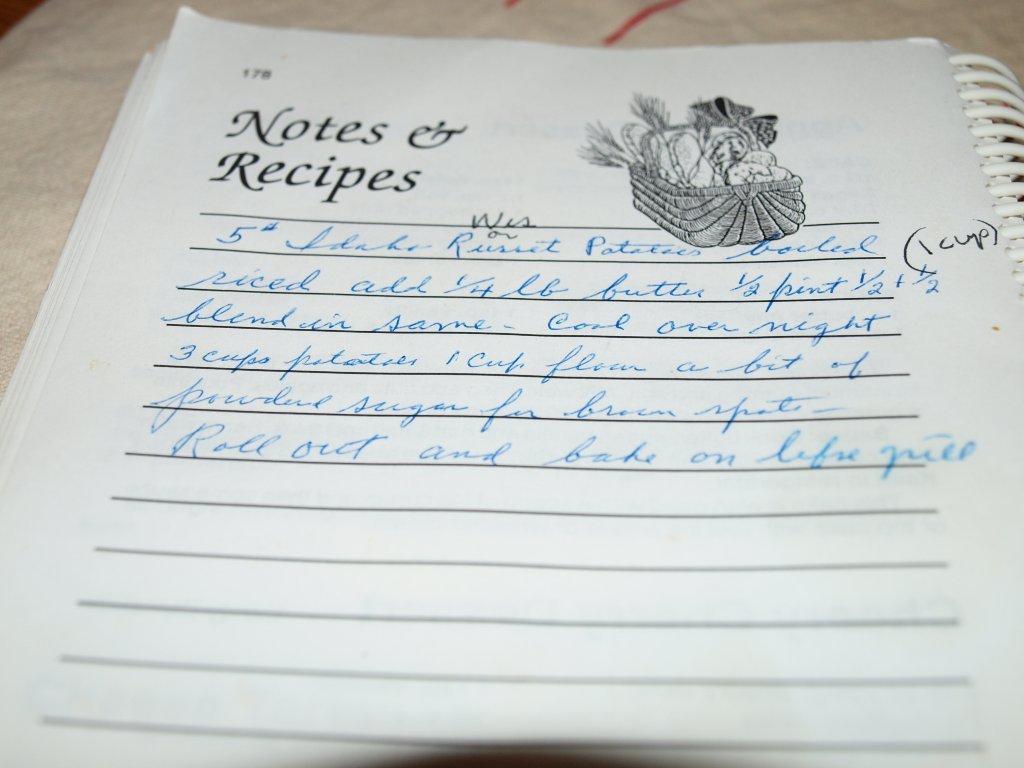 178
Notes &
Recipes
Wis
or
5# Idaho Russet Potatoes boiled (1 cup)
riced add 1/4 lb butter 1/2 pint 1/2 + 1/2
blend in same - Cool over night
3 cups potatoes 1 cup flour a bit of
powdered sugar for brown spots -
Roll out and bake on lefse grill